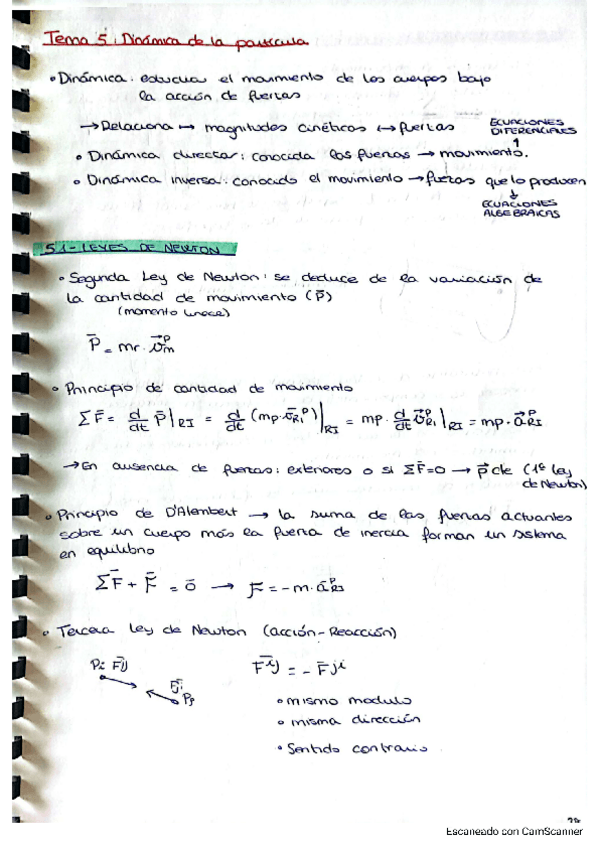 Tema 5: Dinámica de la partícula.
• Dinámica: estudia el movimiento de los cuerpos bajo
la acción de fuerzas
→ Relaciona ↔ magnitudes cinéticas ↔ fuerzas
ECUACIONES
DIFERENCIALES
↑
• Dinámica directa: conocida las fuerzas → movimiento.
• Dinámica inversa: conocido el movimiento → fuerzas que lo producen
↓
ECUACIONES
ALGEBRAICAS
5.1- LEYES DE NEWTON
• Segunda Ley de Newton: se deduce de la variación de
la cantidad de movimiento (p̄)
(momento lineal)
• Principio de cantidad de movimiento
ΣF̄ = d/dt p̄|RI = d/dt (mp·v̄RI^P)|RI = mp·d/dt v̄RI^P|RI = mp·āRI^P
→ En ausencia de fuerzas exteriores o si ΣF̄=0 → p̄ cte (1ª Ley
de Newton)
• Principio de D'Alembert → la suma de las fuerzas actuantes
sobre un cuerpo más la fuerza de inercia forman un sistema
en equilibrio
ΣF̄ + F̄ = ō → F = -m·āRI^P
• Tercera Ley de Newton (acción-Reacción)
Pi F̄ij
F̄ji
Pj
F̄ij = - F̄ji
• mismo modulo
• misma dirección
• Sentido contrario
Escaneado con CamScanner